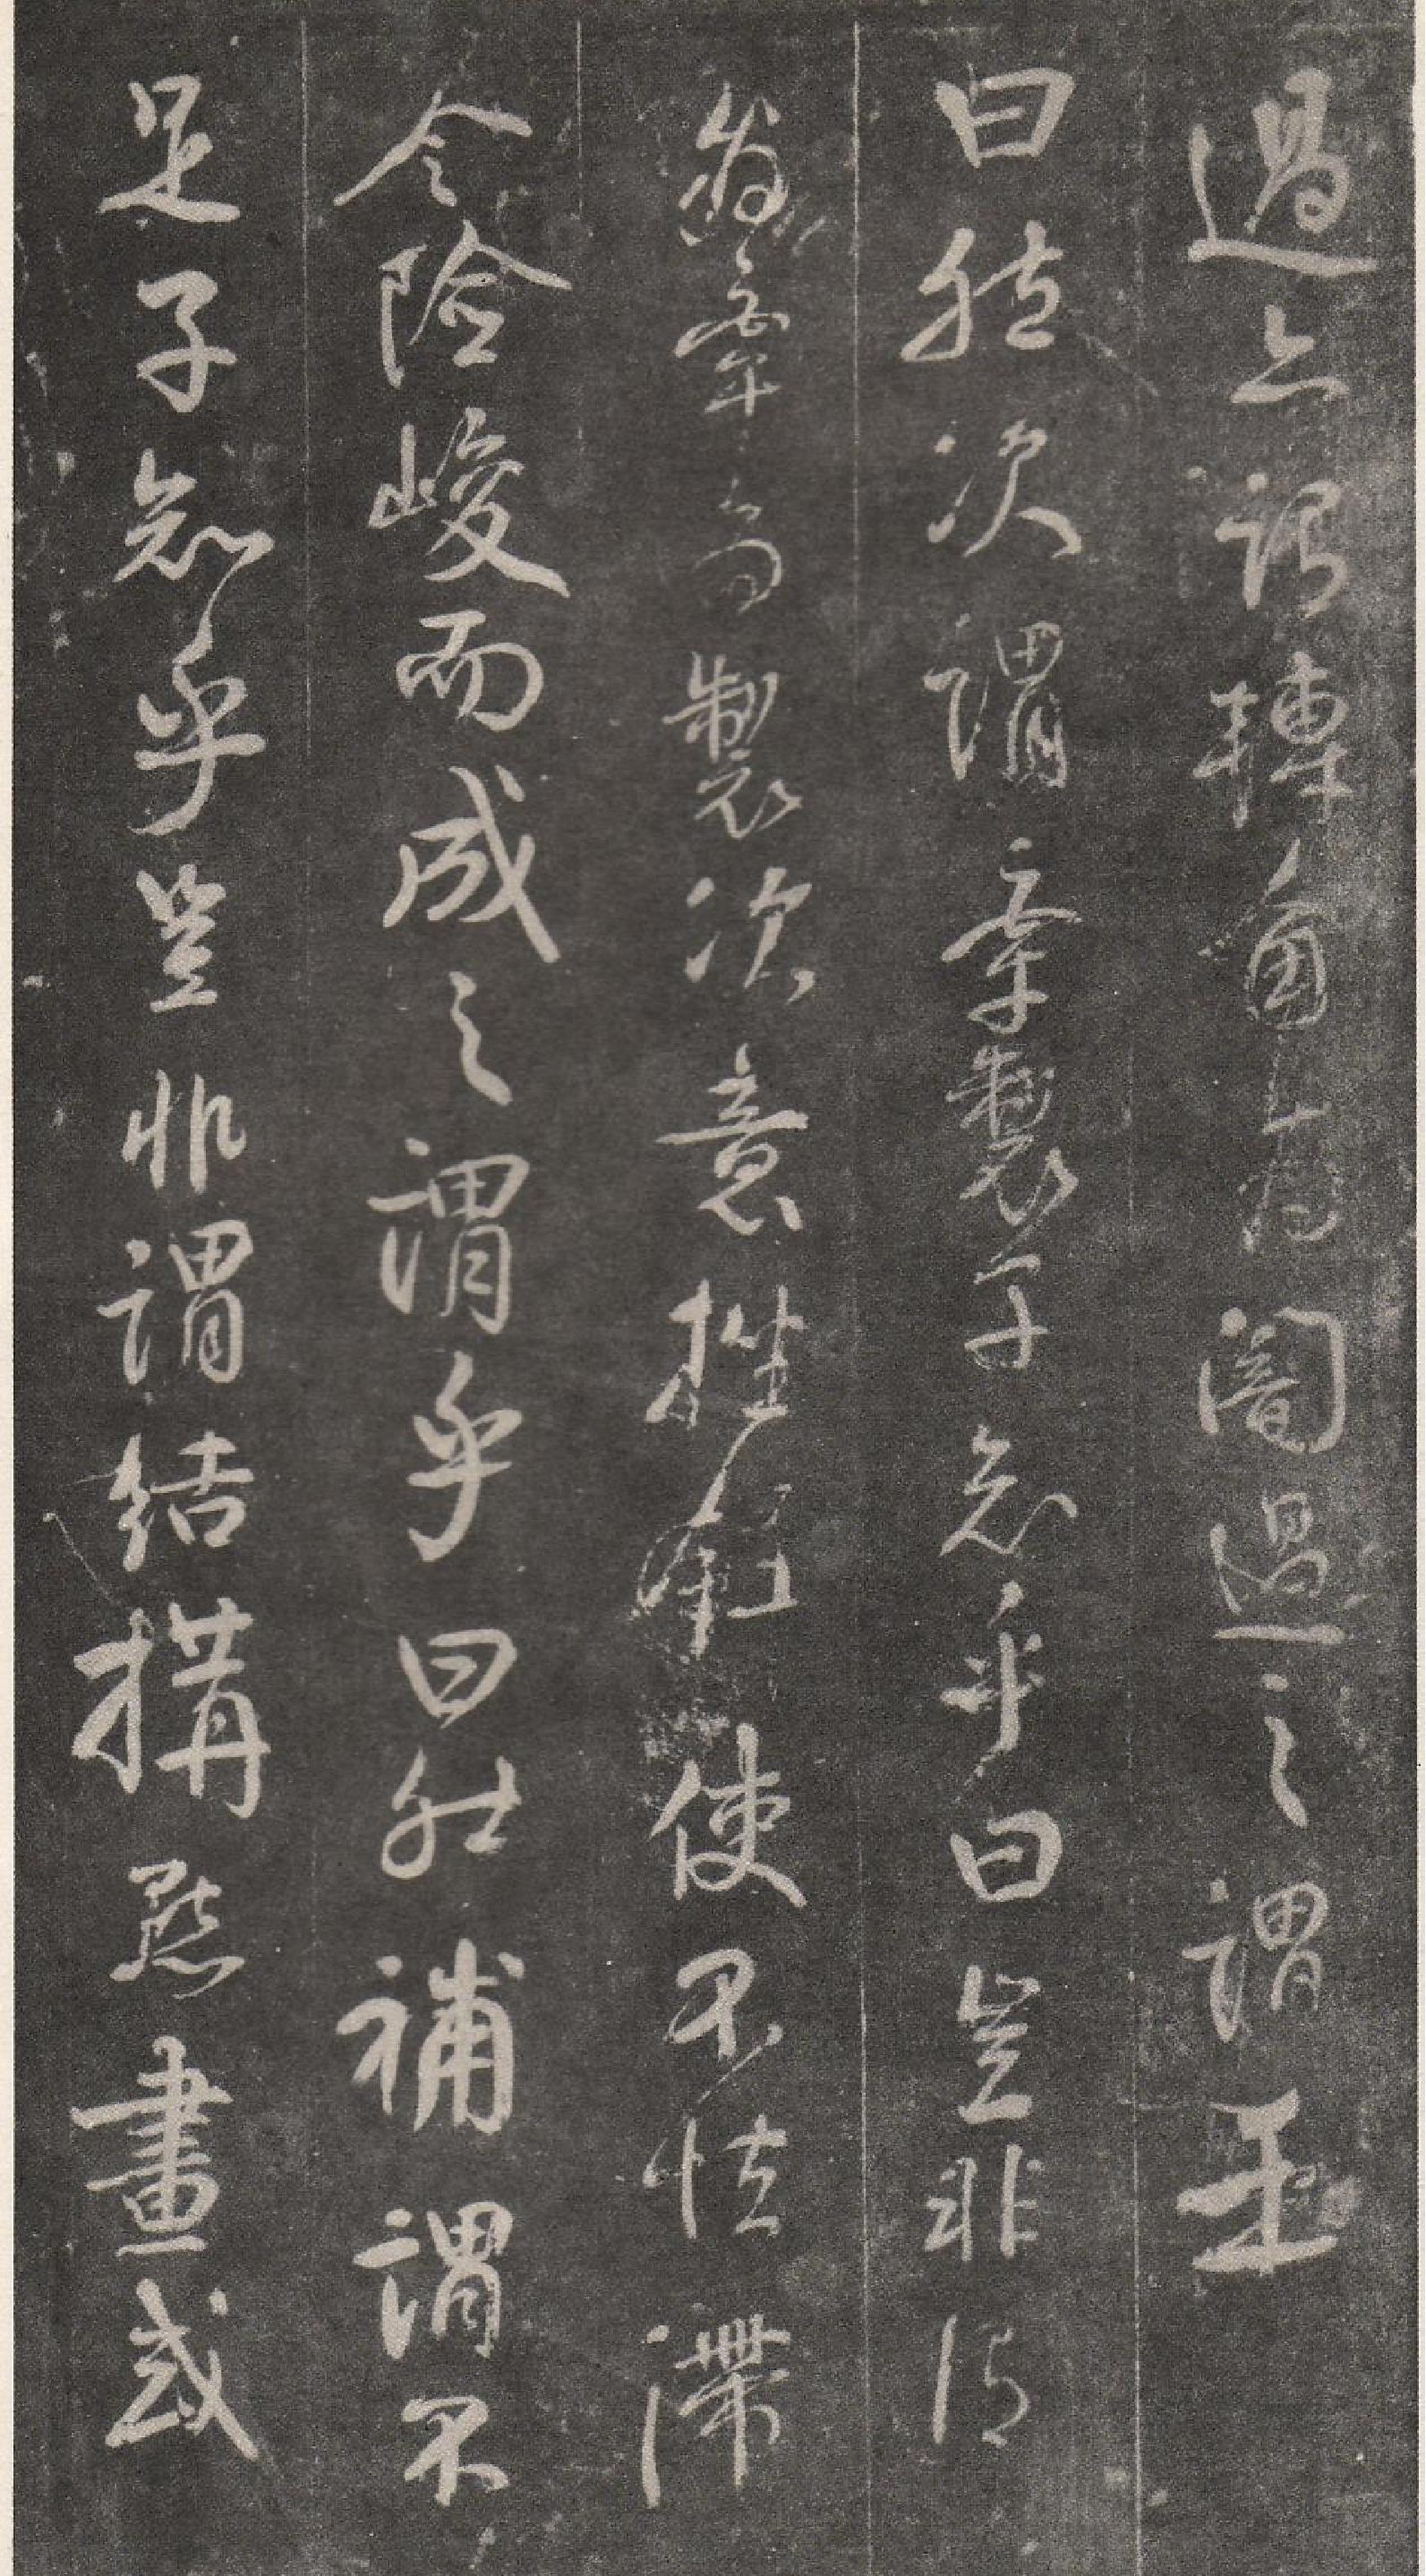 過亦謂轉角為闇過之謂
曰然決謂牽製子知乎曰豈非謂
為牽為製決意挫鋒使不怯滯
令險峻而成之謂乎曰然補謂不
足子知乎豈非謂結搆點畫或